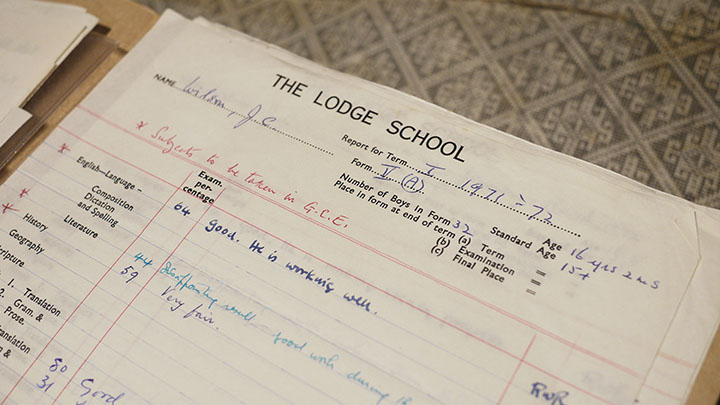 THE LODGE SCHOOL
NAME Wilson, J.C.
Report for Term I 1971 - 72
Form V (A)
Number of Boys in Form 32 Standard Age 16 yrs 2 ms
Place in form at end of term (a) Term = Age 15+
(b) Examination =
(c) Final Place =
* Subjects to be taken in G.C.E.
Exam. per- centage
* English—Language –
Composition
Dictation
and Spelling
64 Good. He is working well.
* Literature
44 Disappointing result - good work during
* History
59 Very fair.
Geography
Scripture
1. Translation
2. Gram. &
Prose.
Translation
&
80 Good
31